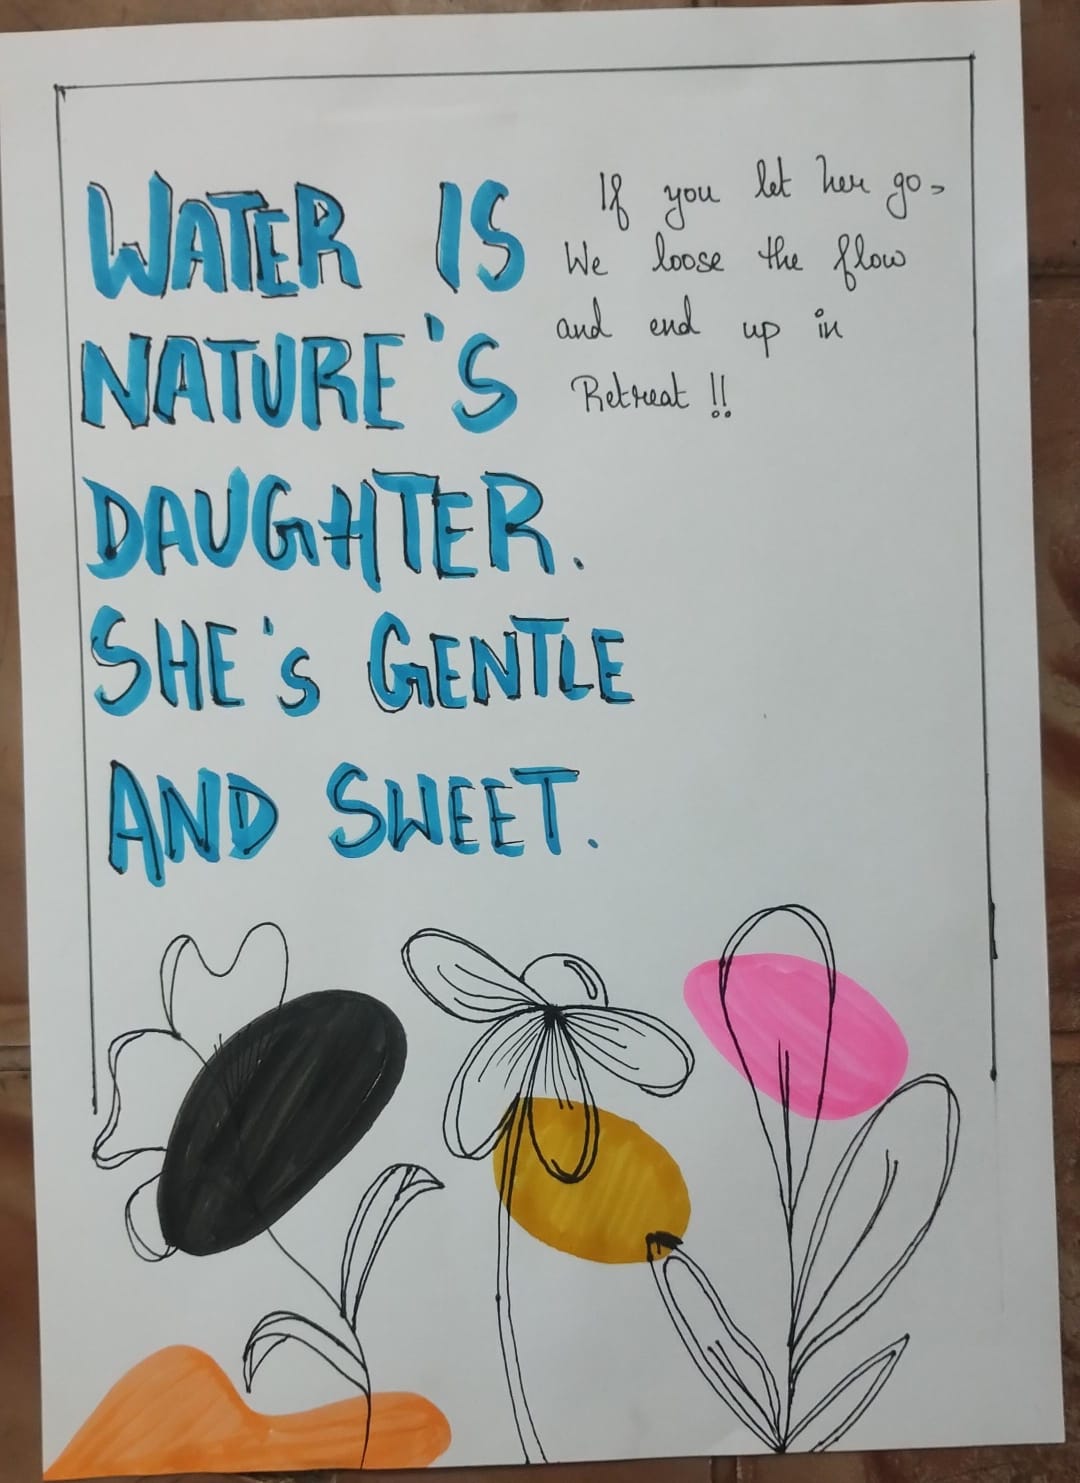 WATER IS
NATURE'S
DAUGHTER.
SHE'S GENTLE
AND SWEET.
If you let her go,
We loose the flow
and end up in
Retreat !!